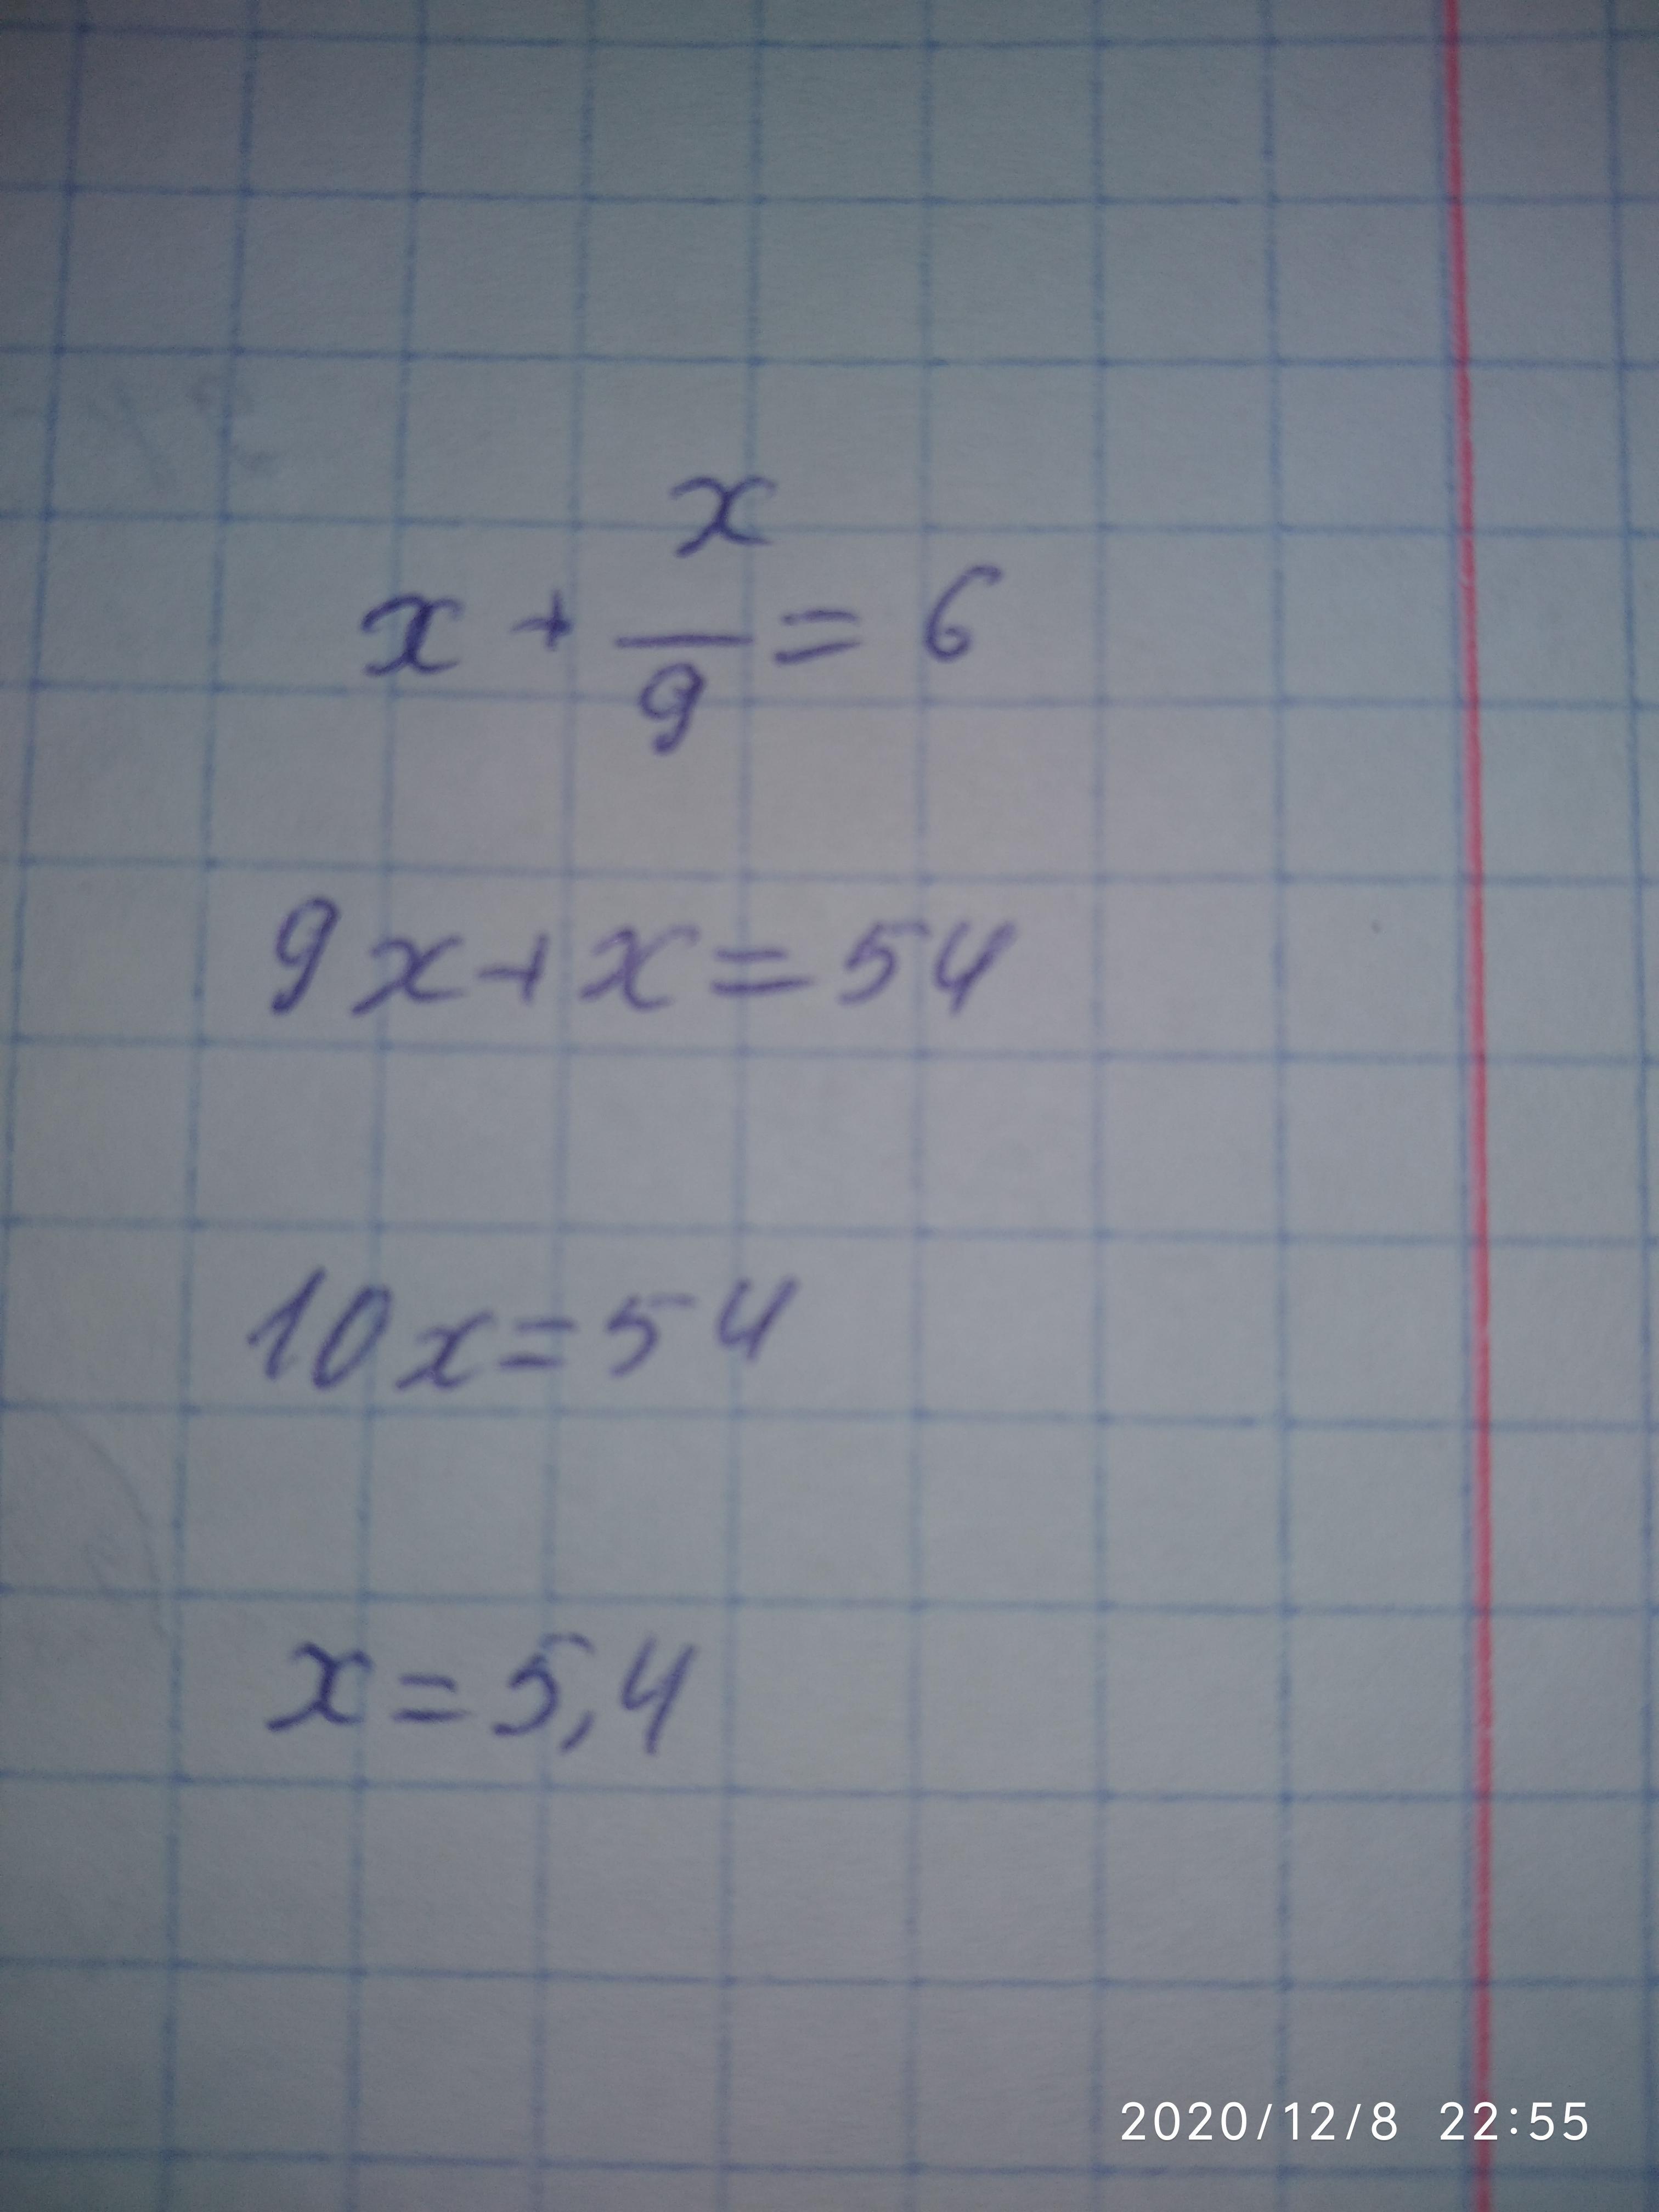 x + x/9 = 6
9x+x=54
10x=54
x=5,4
2020/12/8 22:55